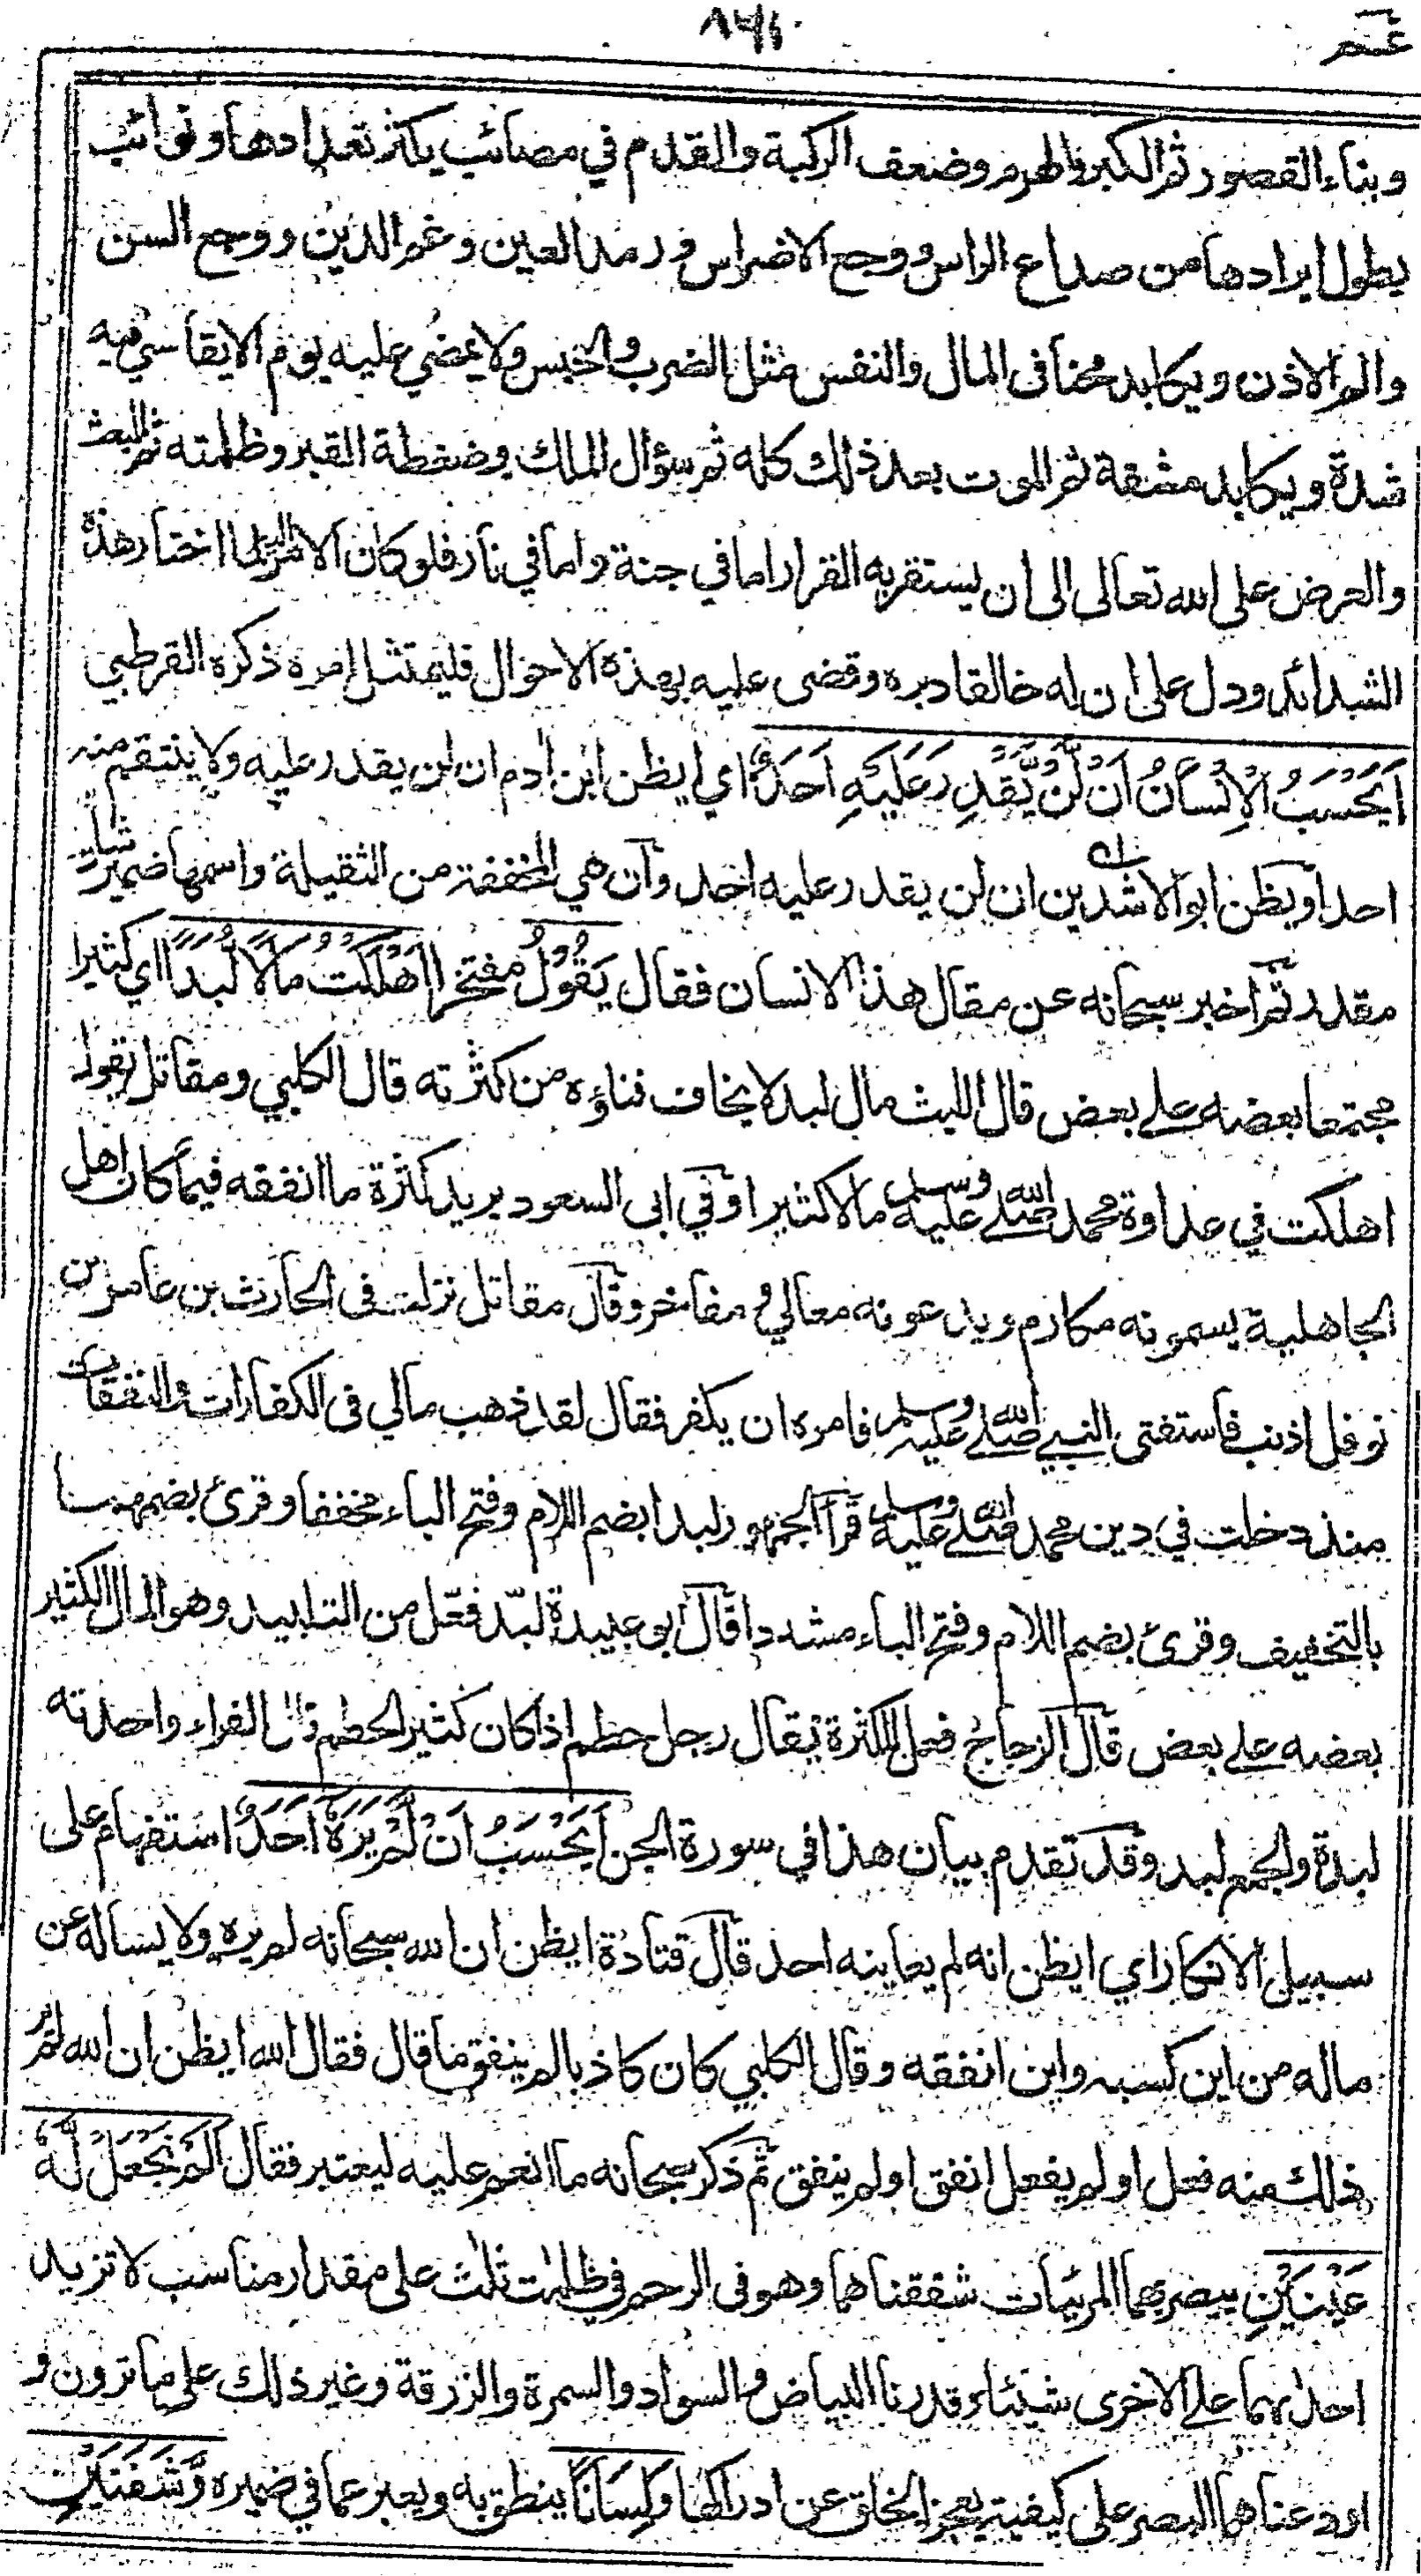 عـم
١٨٦
وبناء القصور ثم الكبر والهرم وضعف الركبة والقدم في مصائب يكثر تعدادها ونوائب
يطول ايرادها من صداع الراس ووجع الاضراس ورمد العين وغم الدين ووجع السن
والم الاذن ويكابد محنا في المال والنفس مثل الضرب والحبس ولا يمضي عليه يوم الا يقاسي فيه
شدة ويكابد مشقة ثم الموت بعد ذلك كله ثم سؤال الملك وضغطة القبر وظلمته ثم البعث
والعرض على الله تعالى الى ان يستقر به القرار اما في جنة واما في نار فلو كان الامر اليه لما اختار هذه
الشدائد ودل على ان له خالقا دبره وقضى عليه بهذه الاحوال فليمتثل امره ذكره القرطبي
اَيَحْسَبُ الْاِنْسَانُ اَنْ لَّنْ يَّقْدِرَ عَلَيْهِ اَحَدٌ اي ايظن ابن ادم ان لن يقدر عليه ولا ينتقم منه
احد او يظن ابو الاشدين ان لن يقدر عليه احد وان هي المخففة من الثقيلة واسمها ضمير شان
مقدر ثم اخبر سبحانه عن مقال هذا الانسان فقال يَقُوْلُ مفتخرا اَهْلَكْتُ مَالًا لُّبَدًا اي كثيرا
مجتمعا بعضه على بعض قال الليث مال لبد لا يخاف فناؤه من كثرته قال الكلبي ومقاتل يقول
اهلكت في عداوة محمد صلى الله عليه وسلم مالا كثيرا وفي ابي السعود يريد كثرة ما انفقه فيما كان اهل
الجاهلية يسمونه مكارم ويدعونه معالي ومفاخر وقال مقاتل نزلت في الحارث بن عامر بن
نوفل اذنب فاستفتى النبي صلى الله عليه وسلم فامره ان يكفر فقال لقد ذهب مالي في الكفارات والنفقات
منذ دخلت في دين محمد صلى الله عليه وسلم قرأ الجمهور لبدا بضم اللام وفتح الباء مخففا وقرئ بضمهما
بالتخفيف وقرئ بضم اللام وفتح الباء مشددا قال ابو عبيدة لبّد فعّل من التلبيد وهو المال الكثير
بعضه على بعض قال الزجاج فعل للكثرة يقال رجل حطم اذا كان كثير الحطم قال الفراء واحدته
لبدة والجمع لبد وقد تقدم بيان هذا في سورة الجن اَيَحْسَبُ اَنْ لَّمْ يَرَهٗ اَحَدٌ استفهام على
سبيل الانكار اي ايظن انه لم يعاينه احد قال قتادة ايظن ان الله سبحانه لم يره ولا يساله عن
ماله من اين كسبه واين انفقه وقال الكلبي كان كاذبا لم ينفق ما قال فقال الله ايظن ان الله لم ير
ذلك منه فعل او لم يفعل انفق او لم ينفق ثم ذكر سبحانه ما انعم عليه ليعتبر فقال اَلَمْ نَجْعَلْ لَّهٗ
عَيْنَيْنِ يبصر بهما المرئيات شققناهما وهو في الرحم في ظلمت ثلث على مقدار مناسب لا تزيد
احداهما على الاخرى شيئا وقدرنا البياض والسواد والسمرة والزرقة وغير ذلك على ما ترون و
اودعناهما البصر على كيفية يعجز الخلق عن ادراكها وَلِسَانًا ينطق به ويعبر عما في ضميره وَّشَفَتَيْنِ